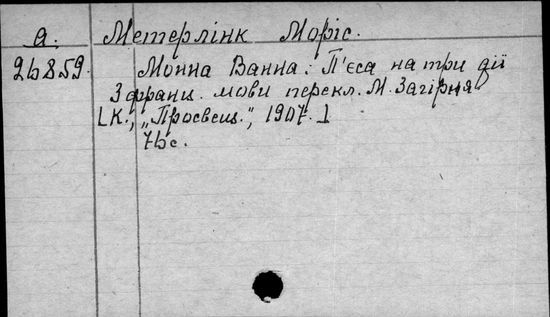 а. Метерлінк Моріс.
26859. Монна Ванна: П'єса на три дії
З франц. мови перекл. М. Загірня
[К., „Просвещ.", 1907.]
76с.